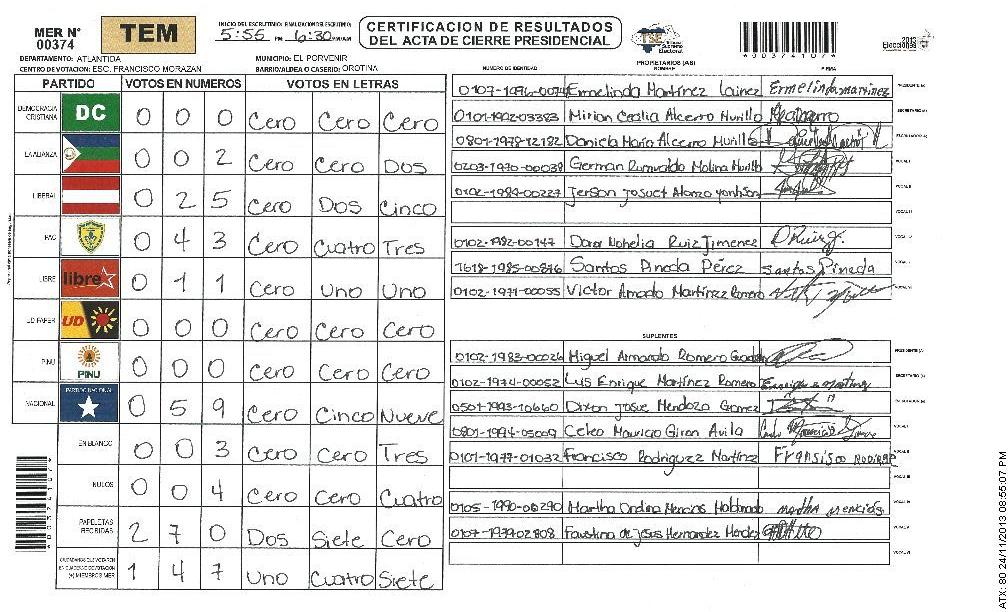 MER N°
00374
TEM
INICIO DEL ESCRUTINIO: FINALIZACION DEL ESCRUTINIO:
5:55 PM 6:30 PM/AM
CERTIFICACION DE RESULTADOS
DEL ACTA DE CIERRE PRESIDENCIAL
TSE
Tribunal
Supremo
Electoral
*00374107*
2013
Elecciones
DEPARTAMENTO: ATLANTIDA
MUNICIPIO: EL PORVENIR
CENTRO DE VOTACION: ESC. FRANCISCO MORAZAN
BARRIO/ALDEA O CASERIO: OROTINA
PARTIDO VOTOS EN NUMEROS VOTOS EN LETRAS
DEMOCRACIA CRISTIANA DC 0 0 0 Cero Cero Cero
LA ALIANZA 0 0 2 Cero Cero Dos
LIBERAL 0 2 5 Cero Dos Cinco
PAC 0 4 3 Cero Cuatro Tres
LIBRE libre 0 1 1 Cero Uno Uno
UD FAPER UD 0 0 0 Cero Cero Cero
PINU PINU 0 0 0 Cero Cero Cero
NACIONAL PARTIDO NACIONAL 0 5 9 Cero Cinco Nueve
EN BLANCO 0 0 3 Cero Cero Tres
NULOS 0 0 4 Cero Cero Cuatro
PAPELETAS RECIBIDAS 2 7 0 Dos Siete Cero
1 4 7 Uno Cuatro Siete
NUMERO DE IDENTIDAD PROPIETARIOS (AS) NOMBRE FIRMA
Ermelinda Martínez Lainez Ermelinda martinez PRESIDENTE (A)
0101-1902-03383 Mirian Cecilia Alcerro Murillo SECRETARIO (A)
0801-1978-12182 Daniela María Alcerro Murillo ESCRUTADOR (A)
0203-1970-00038 German Rumualdo Molina Murillo VOCAL I
0102-1994-00227 Jerson Josuet Alonzo VOCAL II
VOCAL III
0102-1982-00147 Dora Nohelia Ruiz Jimenez D Ruiz J. VOCAL IV
1618-1985-00846 Santos Pineda Pérez Santos Pineda VOCAL V
0102-1971-00055 Victor Amado Martínez Romero VOCAL VI
SUPLENTES
0102-1983-00026 Miguel Armando Romero PRESIDENTE (A)
0102-1974-00052 Luis Enrique Martínez Romero Enrique Martinez SECRETARIO (A)
0501-1993-10660 Dixon Josue Mendoza Gomez ESCRUTADOR (A)
0801-1994-05009 Celeo Mauricio Giron Avila VOCAL I
0101-1977-01032 Francisco Rodriguez Martínez Fransisco VOCAL II
VOCAL III
0105-1990-00290 Martha Ondina Mencias Maldonado martha mencias VOCAL IV
Faustina de Jesus Hernandez Mendez VOCAL V
VOCAL VI
ATX: 80 24/11/2013 08:55:07 PM